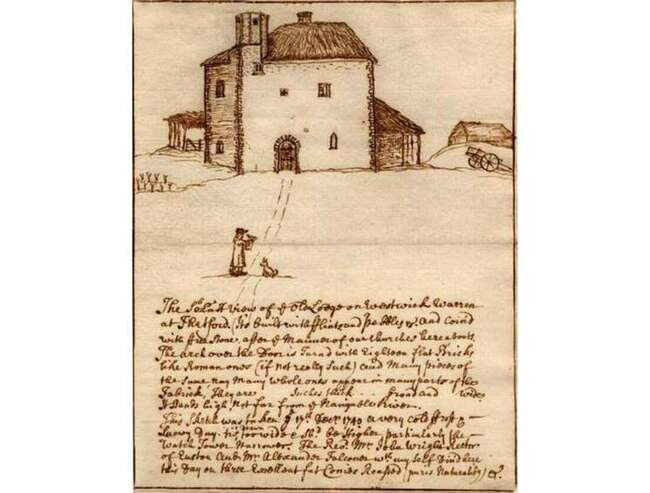 The So: East View of ye Old Lodge on Westwick Warren
at Thetford. Its Built with Flints and Pebbles, and Coind
with free stone, after ye Manner of our Churches hereabouts.
The arch over the Door is Turnd with Eighteen flat Bricks
like Roman ones (if not really such) and Many pieces of
the same nay Many whole ones appear in many parts of the
Fabrick, They are Inches thick Broad and wide
It stands high Not far from ye River.
This Sketch was taken ye 17th Decr 1740 a very cold frost &
Snowy Day. tis too wide & Shd be Higher particularly the
Watch Tower Narrower. The Revd. Mr. John Wright Rector
of Euston and Mr. Alexander Falconer wth my self Dind here
this Day on three Excellent fat Conies Roasted (puris Naturalibs) &c.